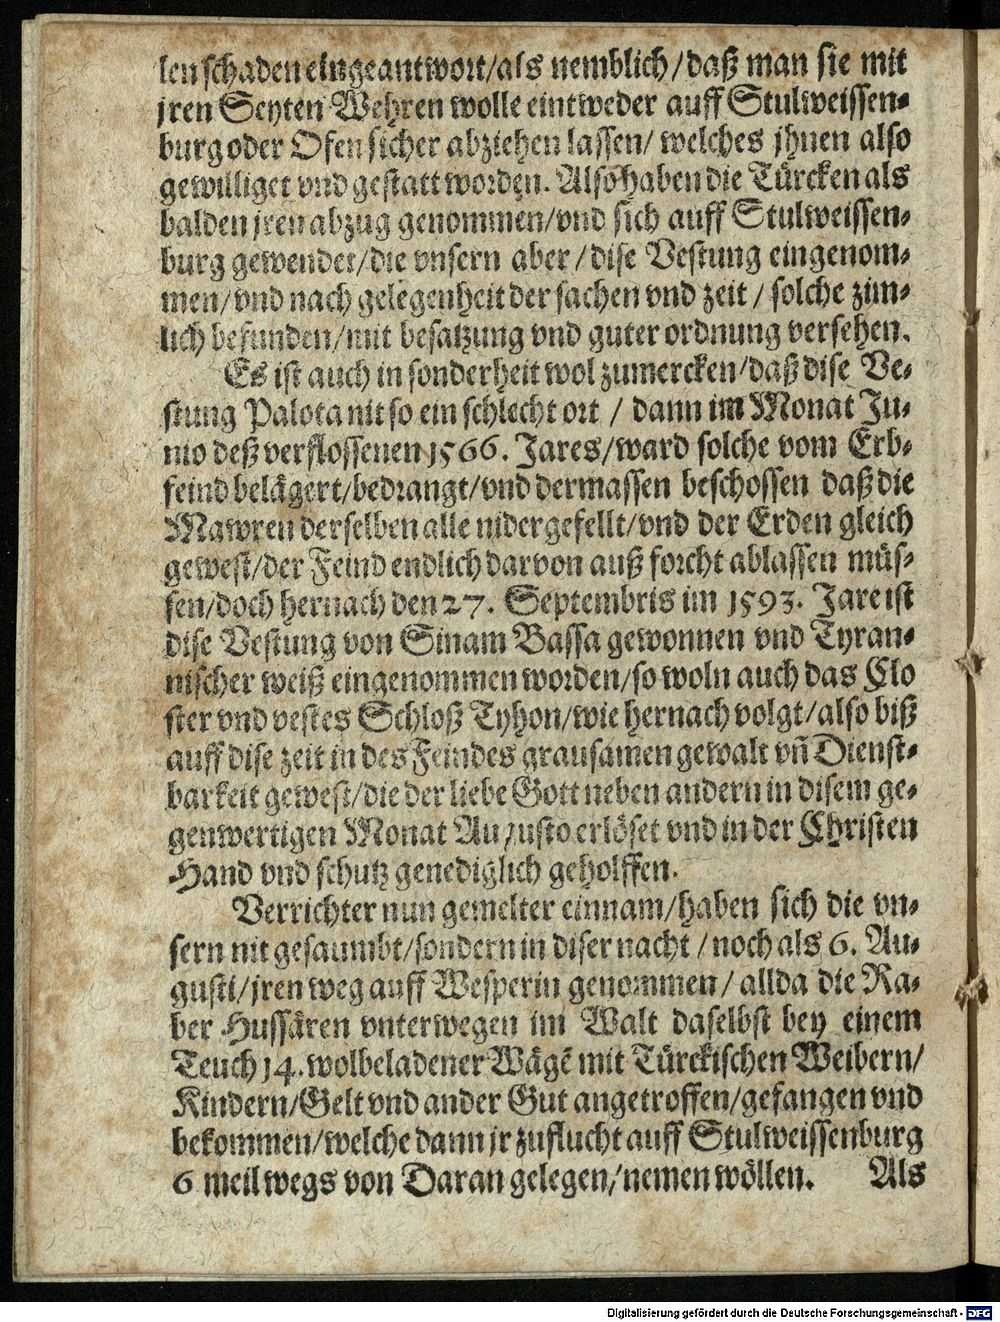 len schaden eingeantwort/als nemblich/daß man sie mit
jren Seyten Wehren wolle eintweder auff Stulweissen-
burg oder Ofen sicher abziehen lassen/ welches jhnen also
gewilliget vnd gestatt worden. Also haben die Türcken als
balden jren abzug genommen/vnd sich auff Stulweissen-
burg gewendet/die vnsern aber/dise Vestung eingenom-
men/vnd nach gelegenheit der sachen vnd zeit/ solche zim-
lich befunden/mit besatzung vnd guter ordnung versehen.
Es ist auch in sonderheit wol zumercken/daß dise Ve-
stung Palota nit so ein schlecht ort / dann im Monat Ju-
nio deß verflossenen 1566. Jares/ward solche vom Erb-
feind belägert/bedrangt/vnd dermassen beschossen daß die
Mawren derselben alle nidergefellt/vnd der Erden gleich
gewest/der Feind endlich darvon auß forcht ablassen müs-
sen/doch hernach den 27. Septembris im 1593. Jare ist
dise Vestung von Sinam Bassa gewonnen vnd Tyran-
nischer weiß eingenommen worden/so woln auch das Clo
ster vnd vestes Schloß Tyhon/wie hernach volgt/also biß
auff dise zeit in des Feindes grausamen gewalt vn̄ Dienst-
barkeit gewest/die der liebe Gott neben andern in disem ge-
genwertigen Monat Augusto erlöset vnd in der Christen
Hand vnd schutz genediglich geholffen.
Verrichter nun gemelter einnam/haben sich die vn-
sern nit gesaumbt/sondern in diser nacht / noch als 6. Au-
gusti/jren weg auff Wesperin genommen/ allda die Ra-
ber Hussären vnterwegen im Walt daselbst bey einem
Teuch 14. wolbeladener Wägē mit Türckischen Weibern/
Kindern/Gelt vnd ander Gut angetroffen/gefangen vnd
bekommen/welche dann jr zuflucht auff Stulweissenburg
6 meil wegs von Daran gelegen/nemen wöllen. Als
Digitalisierung gefördert durch die Deutsche Forschungsgemeinschaft - DFG